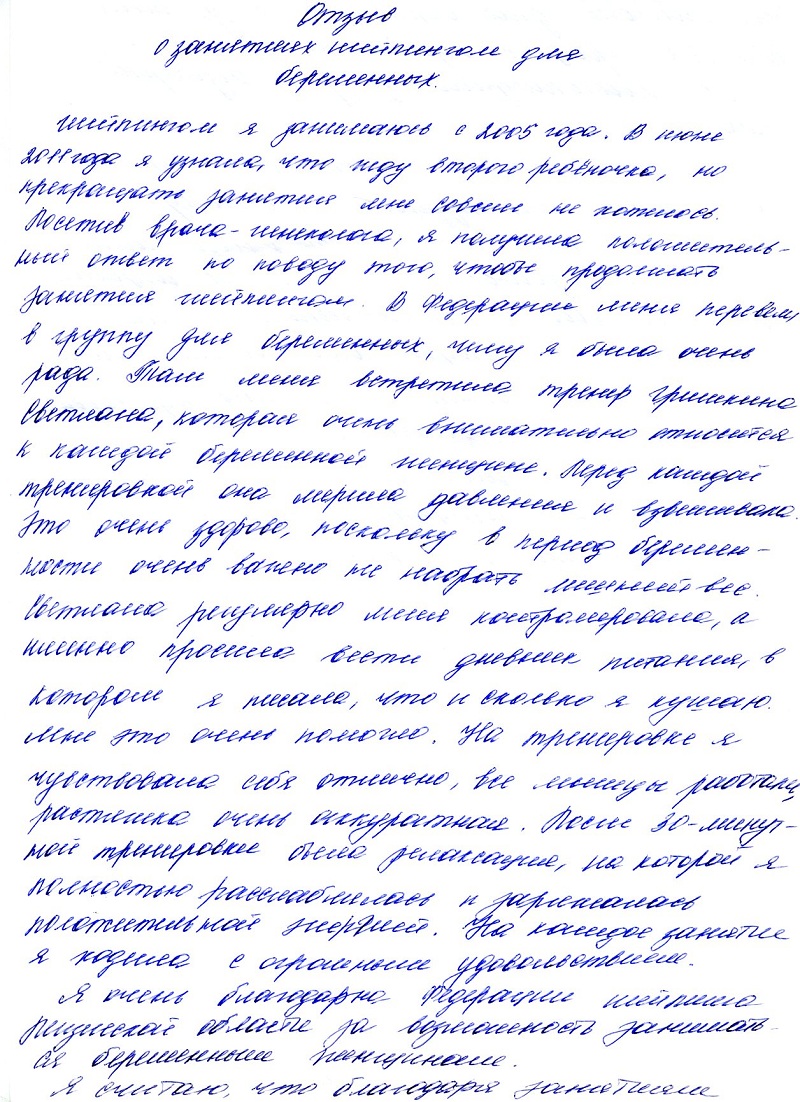 Отзыв
о занятиях шейпингом для
беременных.
Шейпингом я занимаюсь с 2005 года. В июне
2011 года я узнала, что жду второго ребёночка, но
прекращать занятия мне совсем не хотелось.
Посетив врача-гинеколога, я получила положитель-
ный ответ по поводу того, чтобы продолжать
занятия шейпингом. В Федерации меня перевели
в группу для беременных, чему я была очень
рада. Там меня встретила тренер Гришкина
Светлана, которая очень внимательно относится
к каждой беременной женщине. Перед каждой
тренировкой она мерила давления и взвешивала.
Это очень здорово, поскольку в период беремен-
ности очень важно не набрать лишний вес.
Светлана регулярно меня контролировала, а
именно просила вести дневник питания, в
котором я писала, что и сколько я кушаю.
Мне это очень помогло. На тренировке я
чувствовала себя отлично, все мышцы работали,
растяжка очень аккуратная. После 30-минут-
ной тренировки была релаксация, на которой я
полностью расслаблялась и заряжалась
положительной энергией. На каждое занятие
я ходила с огромным удовольствием.
Я очень благодарна Федерации шейпинга
Рязанской области за возможность занимать-
ся беременным женщинам.
Я считаю, что благодаря занятиям